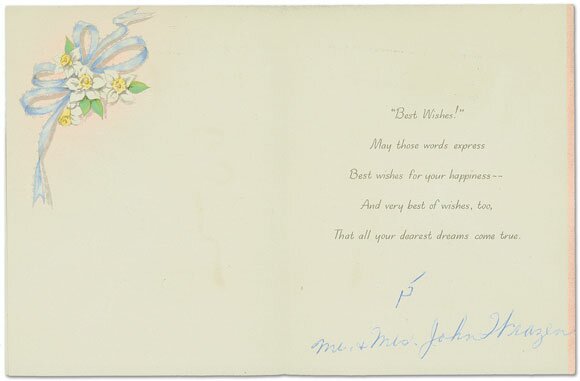 "Best Wishes!"
May those words express
Best wishes for your happiness--
And very best of wishes, too,
That all your dearest dreams come true.
Mr. & Mrs. John